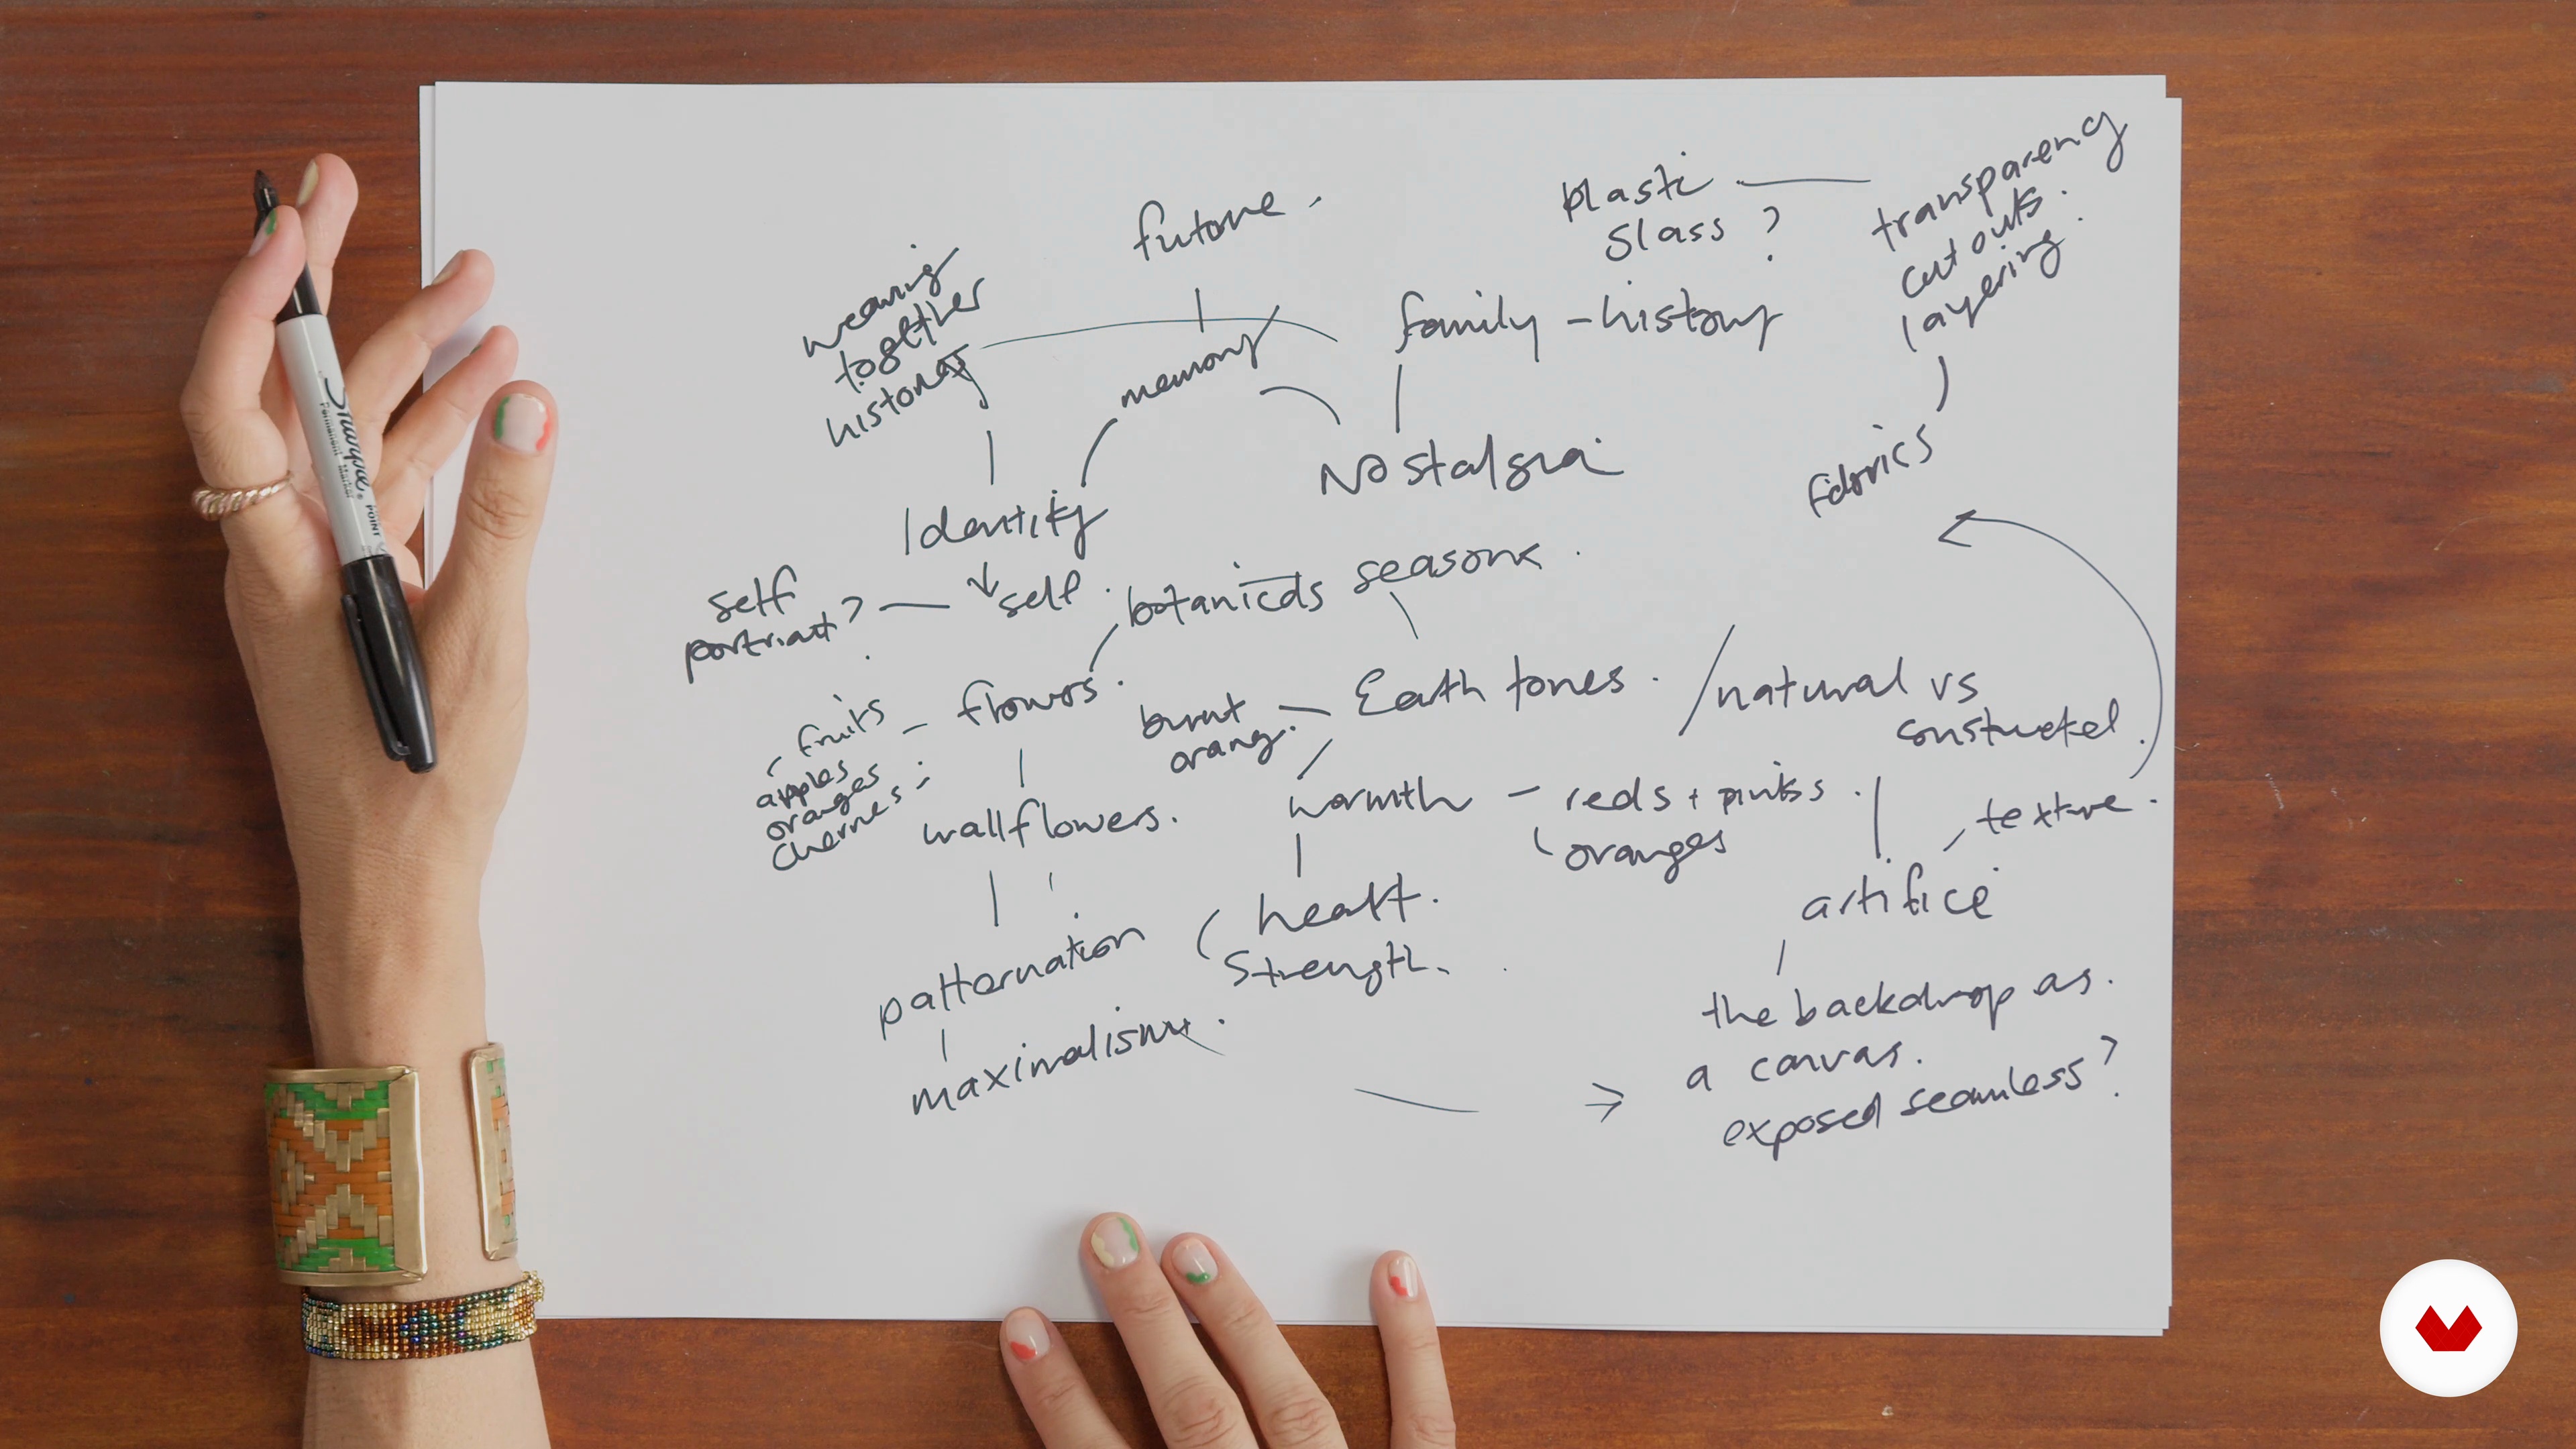 future.
plastic
glass?
transparency
cut outs.
layering.
weaving
together
family - history
memory
Nostalgia
fabrics
Identity
self
portriat?
self.
botanicals
seasons.
fruits
apples
oranges
cherries
flowers.
burnt
orange.
Earth tones.
natural vs
constructed.
wallflowers.
warmth - reds + pinks.
oranges
texture.
artifice
heart.
Strength.
patternation
maximalism.
the backdrop as.
a canvas.
exposed seamless?
Sharpie®
Permanent Marker
POINT